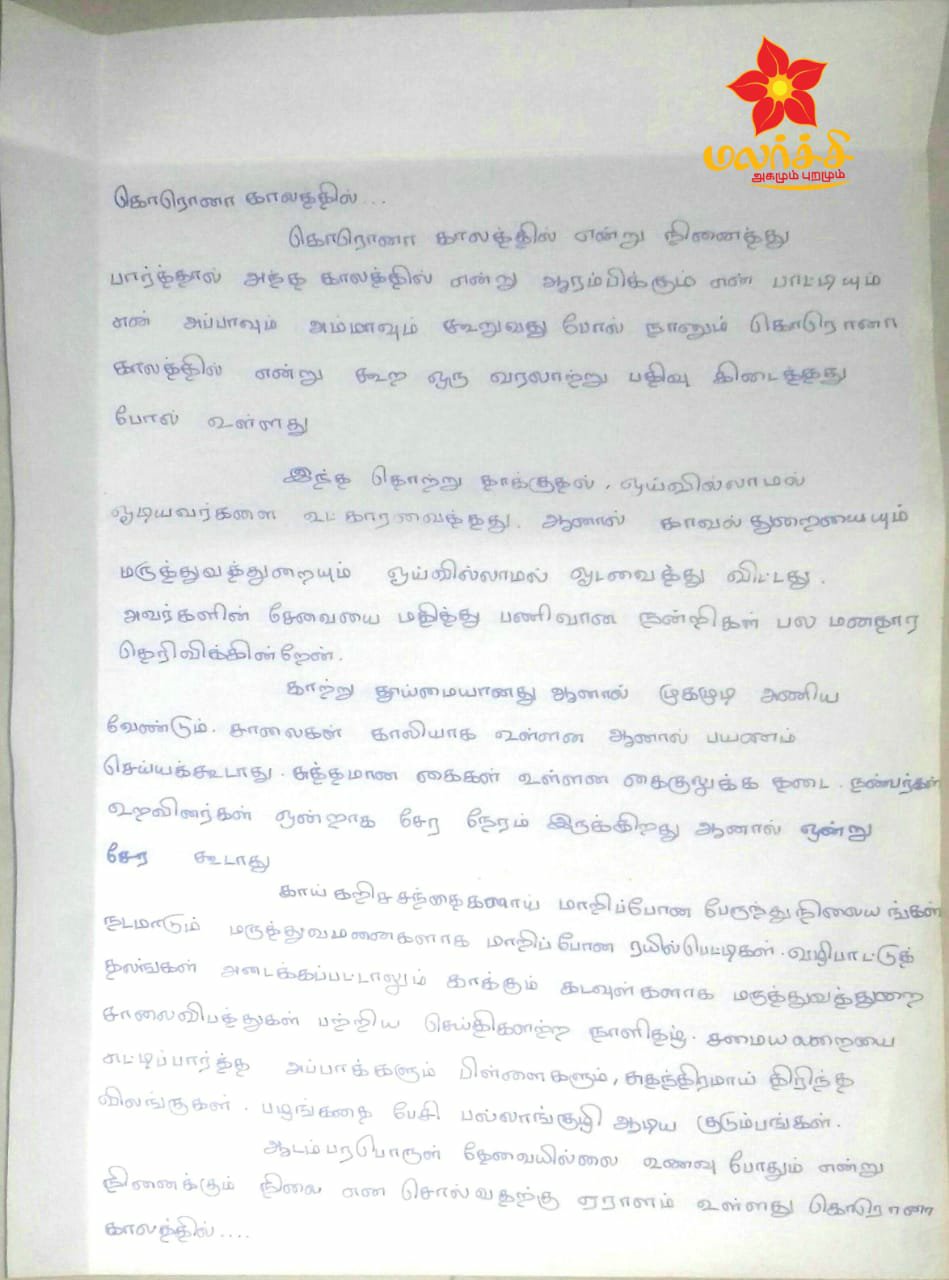 மலர்ச்சி
அகமும் புறமும்
கொரொனா காலத்தில்...
கொரொனா காலத்தில் என்று நினைத்து
பார்த்தால் அந்த காலத்தில் என்று ஆரம்பிக்கும் என் பாட்டியும்
என் அப்பாவும் அம்மாவும் கூறுவது போல் நானும் கொரொனா
காலத்தில் என்று கூற ஒரு வரலாற்று பதிவு கிடைத்தது
போல் உள்ளது
இந்த தொற்று தாக்குதல், ஓய்வில்லாமல்
ஓடியவர்களை உட்காரவைத்தது. ஆனால் காவல் துறையையும்
மருத்துவத்துறையும் ஓய்வில்லாமல் ஓடவைத்து விட்டது.
அவர்களின் சேவையை மதித்து பணிவான நன்றிகள் பல மனதார
தெரிவிக்கின்றேன்.
காற்று தூய்மையானது ஆனால் முகமுடி அணிய
வேண்டும். சாலைகள் காலியாக உள்ளன ஆனால் பயணம்
செய்யக்கூடாது. சுத்தமான கைகள் உள்ளன கைகுலுக்க தடை. நண்பர்கள்
உறவினர்கள் ஒன்றாக சேர நேரம் இருக்கிறது ஆனால் ஒன்று
சேர கூடாது
காய்கறிச்சந்தைகளாய் மாறிப்போன பேருந்து நிலையங்கள்
நடமாடும் மருத்துவமனைகளாக மாறிப்போன ரயில்பெட்டிகள். வழிபாட்டுத்
தலங்கள் அடைக்கப்பட்டாலும் காக்கும் கடவுள்களாக மருத்துவத்துறை
சாலைவிபத்துகள் பற்றிய செய்திகளற்ற நாளிதழ். சமையலறையை
எட்டிப்பார்த்த அப்பாக்களும் பிள்ளைகளும், சுதந்திரமாய் திரிந்த
விலங்குகள். பழங்கதை பேசி பல்லாங்குழி ஆடிய குடும்பங்கள்.
ஆடம்பரபொருள் தேவையில்லை உணவு போதும் என்று
நினைக்கும் நிலை என சொல்வதற்கு ஏராளம் உள்ளது கொரொனா
காலத்தில்....